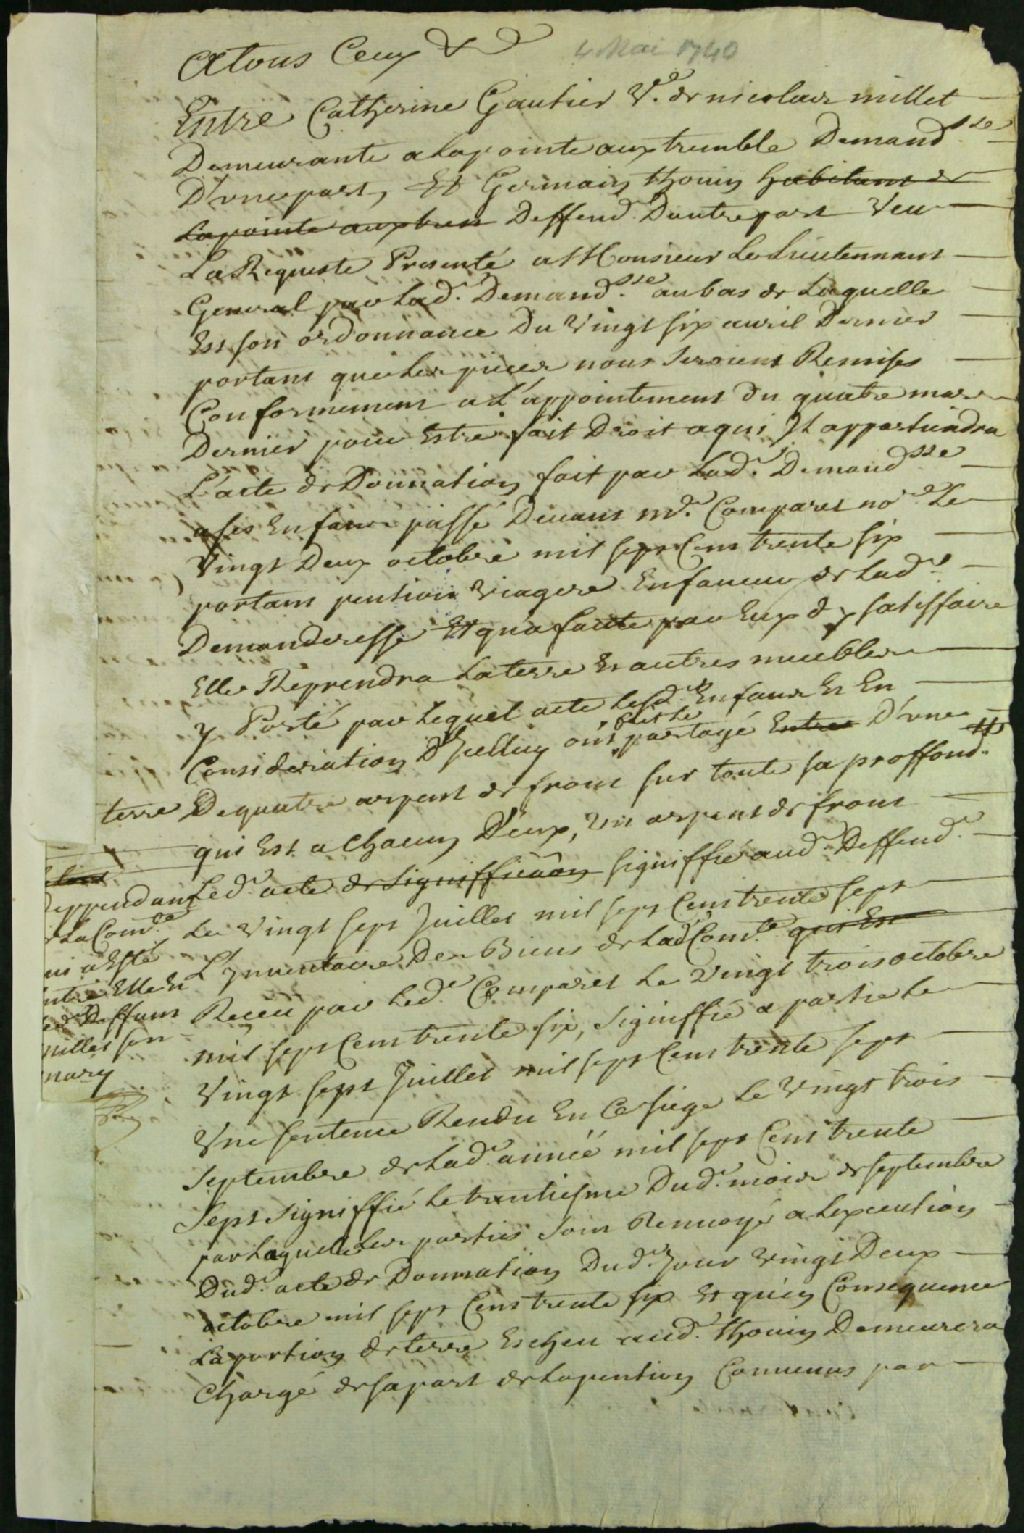 Atous Ceux &
4 Mai 1740
Entre Catherine Gautier Ve. de nicolas millet
Demeurante a Lapointe aux tremble Demandsse
D'vne part, Et Germain thouin habitant de
Lapointe aux trem Deffendr. Dautre part Veu
La Requeste Presenté a Monsieur Le Lieutennant
General par Lade. Demandsse au bas de Laquelle
Est son ordonnance Du Vingt six auril Dernier
portant que les pieces nous seroient Remises
Conformement a L'appointement du quatre mars
Dernier pour Estre fait Droit a qui Il appartiendra
L'acte de Donnation fait par Lade. Demandsse
a ses Enfans passé Deuant me. Comparet nore. Le
Vingt Deux octobre mil sept Cens trente six
portant pention Viagere En faueur de Lade.
Demanderesse Et qu'a faute par Eux d'y satisffaire
Elle Reprendra La terre Et autres meubles
y Porté par Lequel acte Lesd. Enfans Et En
Consideration D'Jcelluy ont partagé Entre D'vne
terre De quatre arpent de front sur toute sa proffondr. #
qui Est a Chacun D'eux, Vn arpent de front
Ledt. acte de Signiffica͠on signiffié aud. Deffendr.
Le Vingt sept Juillet mil sept Cens trente sept
L'ynuentaire Des Biens de Lad Comté qui Est
Receu par Led. Comparet Le Vingt trois octobre
mil sept Cens trente six, signiffié a partie Le
Vingt sept Juillet mil sept Cens trente sept
Vne sentence Rendu En Ce siege Le Vingt trois
Septembre de Lade. année mil sept Cens trente
Sept signiffié Le trentiesme Dud. mois de septembre
par Laquelle Les parties sont Renuoyé a Lexecution
Dud. acte de Donnation Dud. Jour Vingt Deux
octobre mil sept Cens trente six Et qu'en Consequence
La portion de terre Escheu aud. thouin Demeurera
Chargé de sa part de La pention Conuenus par
deppendant
de La Comté
qui a Esté
Entre Elle Et
Led. Deffunt
millet son
mary